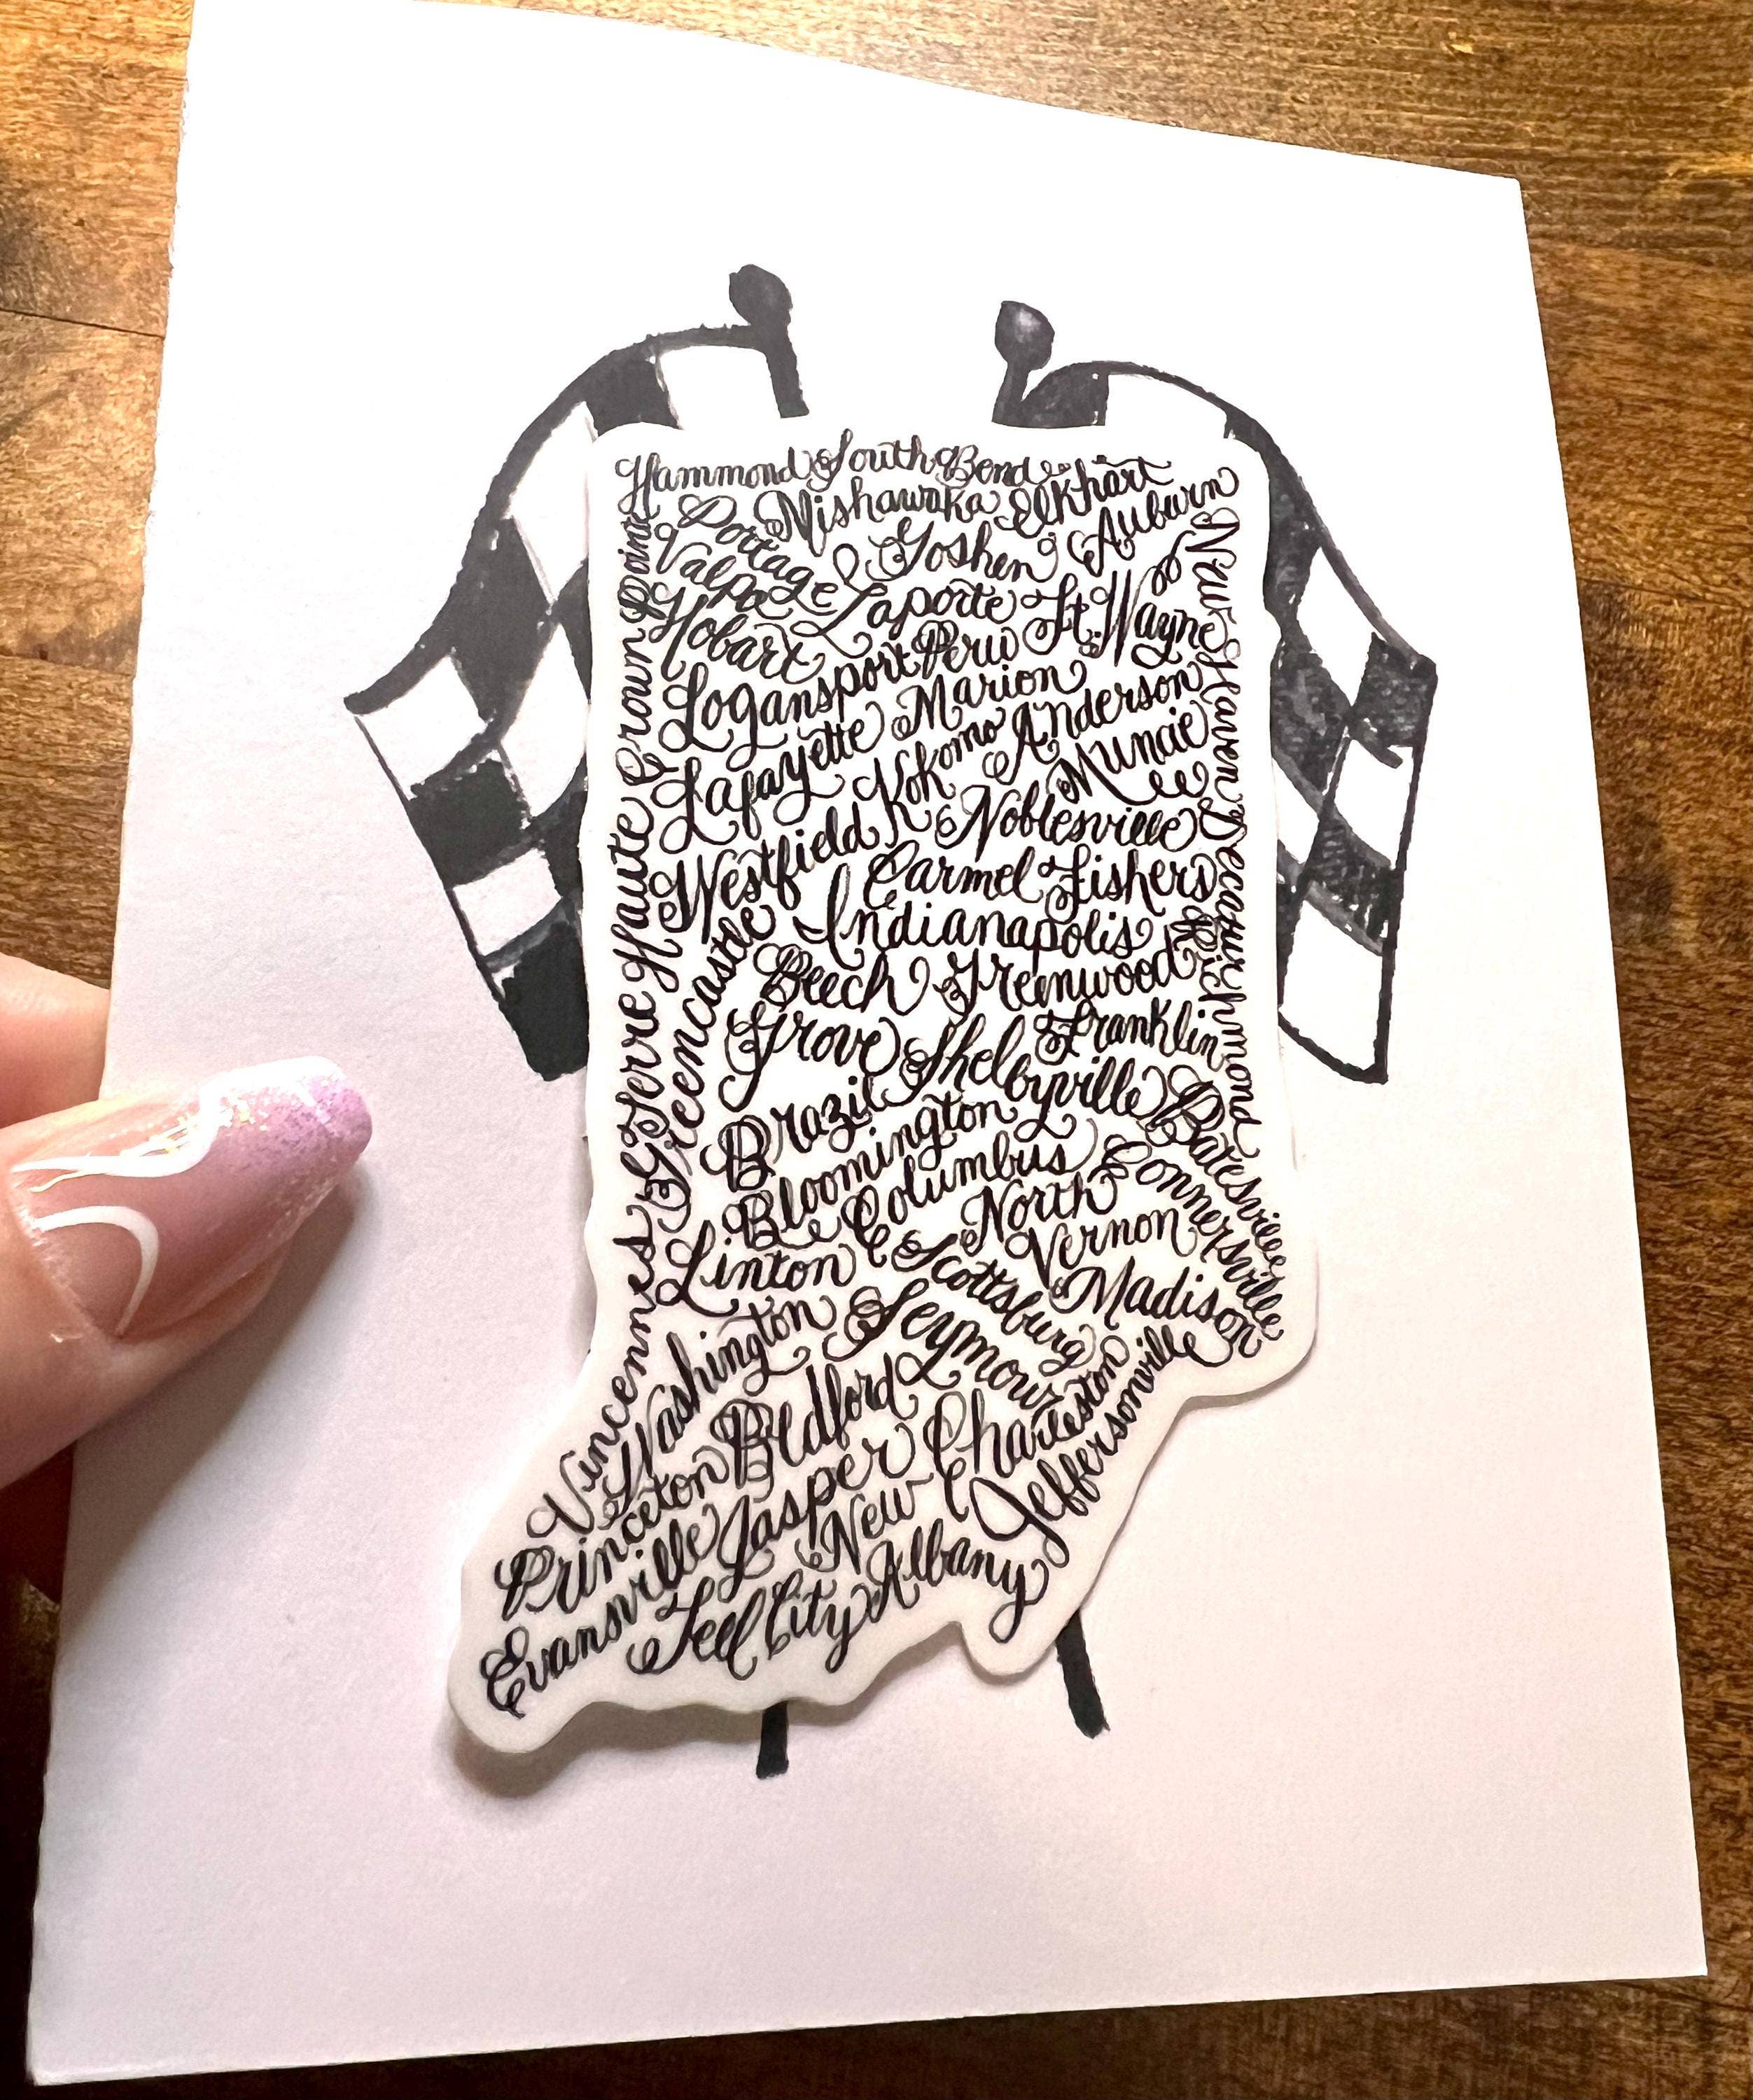 Hammond South Bend
Mishawaka Elkhart
Portage Goshen Auburn
Valpo Laporte Ft. Wayne
Hobart Peru
Logansport Marion
Lafayette Kokomo Anderson
Muncie
Westfield Noblesville
Carmel Fishers
Indianapolis
Beech Greenwood
Grove Shelbyville Franklin
Brazil
Bloomington
Columbus
North
Vernon
Linton Scottsburg
Madison
Washington Seymour
Bedford
Princeton Jasper Charleston
Evansville New
Albany
Tell City
Jeffersonville
Crown Point
Terre Haute
Greencastle
Vincennes
New Haven
Decatur
Richmond
Batesville
Connersville